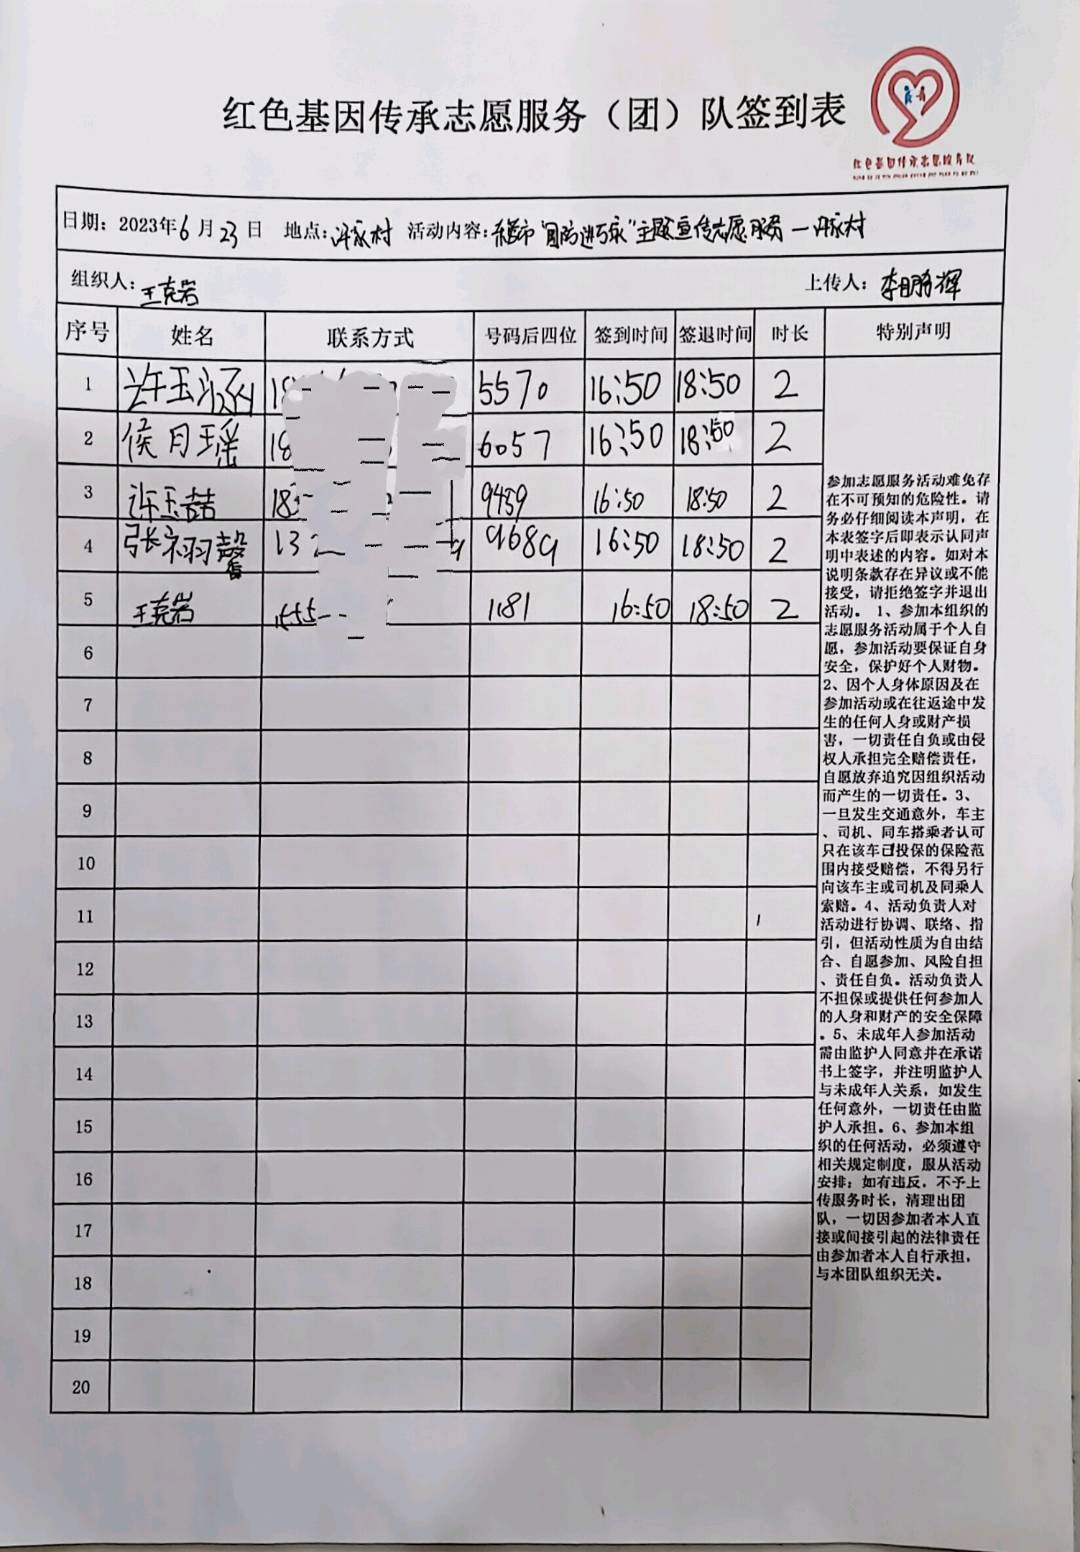 红色基因传承志愿服务（团）队签到表
红色基因传承志愿服务队
日期：2023年6月23日 地点：冯家村 活动内容："国防进万家"主题宣传志愿服务—冯家村
组织人：王克岩 上传人：李鹏辉
序号 姓名 联系方式 号码后四位 签到时间 签退时间 时长 特别声明
1 许玉涵 18 5570 16:50 18:50 2
2 侯月瑶 18 6057 16:50 18:50 2
3 许玉喆 18 9459 16:50 18:50 2
4 张羽馨 132 9689 16:50 18:50 2
5 王克岩 1555 1181 16:50 18:50 2
6
7
8
9
10
11
12
13
14
15
16
17
18
19
20
参加志愿服务活动难免存
在不可预知的危险性。请
务必仔细阅读本声明，在
本表签字后即表示认同声
明中表述的内容。如对本
说明条款存在异议或不能
接受，请拒绝签字并退出
活动。 1、参加本组织的
志愿服务活动属于个人自
愿，参加活动要保证自身
安全，保护好个人财物。
2、因个人身体原因及在
参加活动或在往返途中发
生的任何人身或财产损
害，一切责任自负或由侵
权人承担完全赔偿责任，
自愿放弃追究因组织活动
而产生的一切责任。3、
一旦发生交通意外，车主
、司机、同车搭乘者认可
只在该车已投保的保险范
围内接受赔偿，不得另行
向该车主或司机及同乘人
索赔。4、活动负责人对
活动进行协调、联络、指
引，但活动性质为自由结
合、自愿参加、风险自担
、责任自负。活动负责人
不担保或提供任何参加人
的人身和财产的安全保障
。5、未成年人参加活动
需由监护人同意并在承诺
书上签字，并注明监护人
与未成年人关系，如发生
任何意外，一切责任由监
护人承担。6、参加本组
织的任何活动，必须遵守
相关规定制度，服从活动
安排；如有违反，不予上
传服务时长，清理出团
队，一切因参加者本人直
接或间接引起的法律责任
由参加者本人自行承担，
与本团队组织无关。